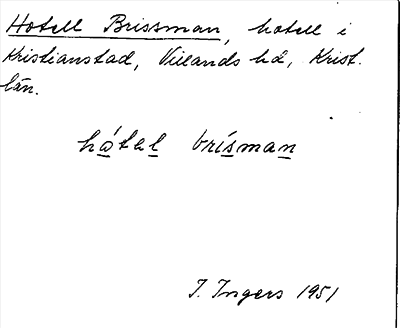 Hotell Brissman, hotell i
Kristianstad, Villands hd, Krist.
län.
hǻtel brísman
I. Ingers 1951